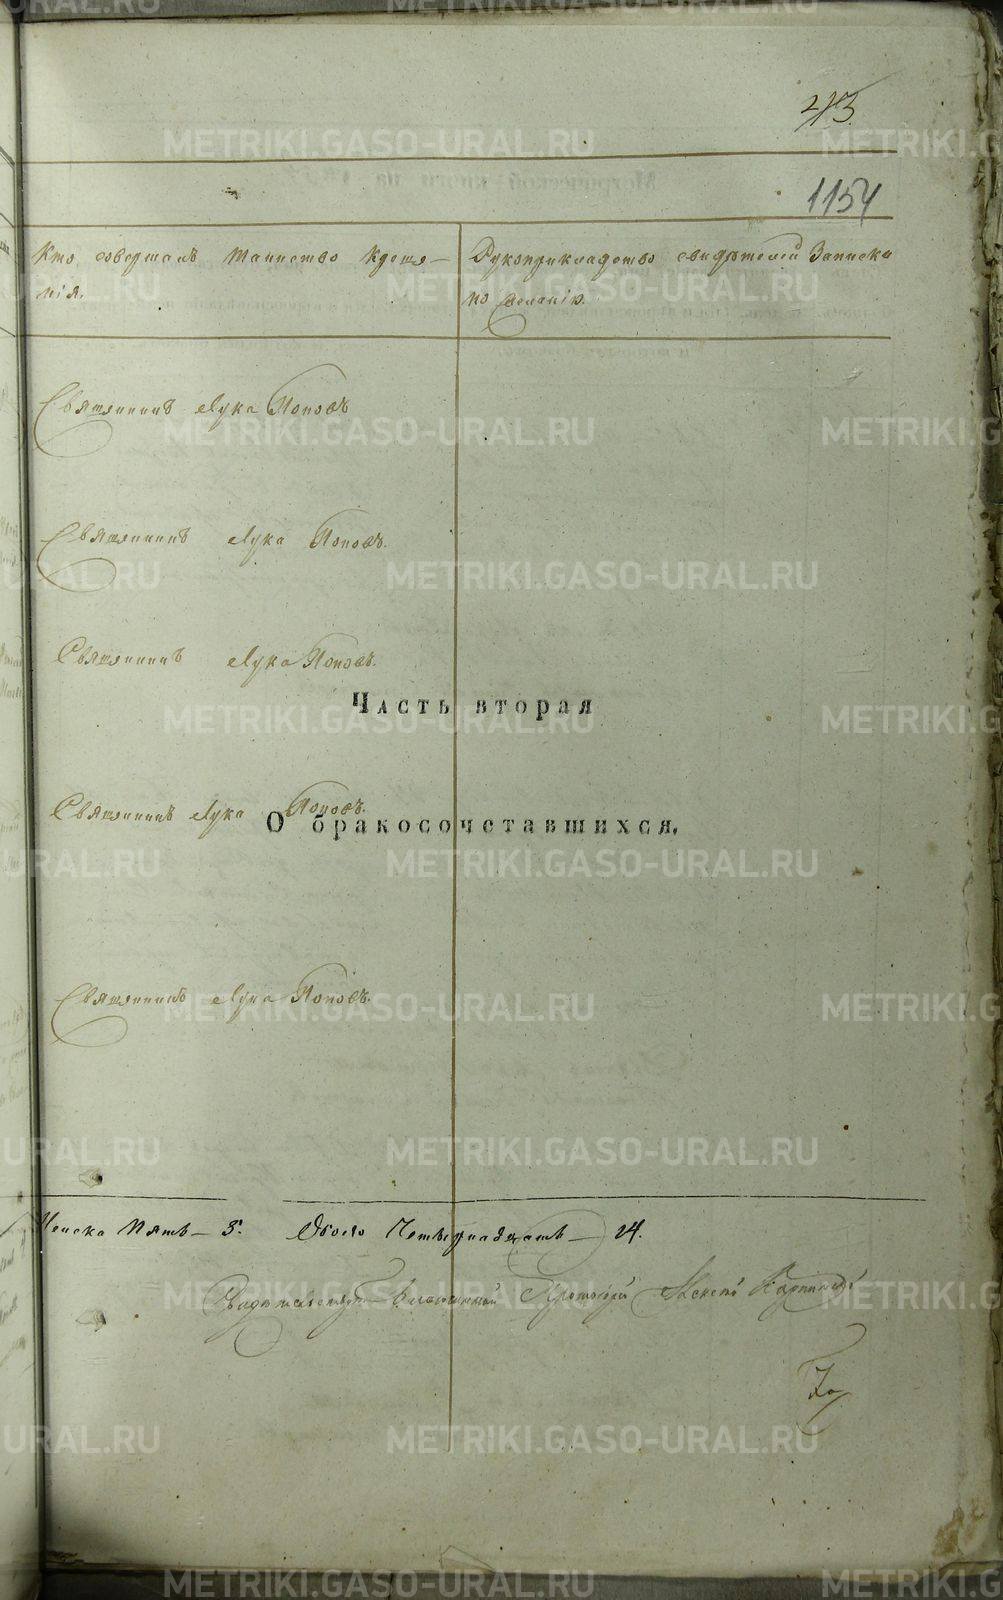 413
1154
Кто совершалъ таинство креще-
нія.
Рукоприкладство свидѣтелей записки
по желанію.
Священникъ Лука Поповъ
Священникъ Лука Поповъ.
Священникъ Лука Поповъ.
Часть вторая
Священникъ Лука Поповъ.
О бракосочетавшихся.
Священникъ Лука Поповъ.
Женска пять – 5. Обоего Четырнадцать – 14.
Свидѣтельствовалъ Благочинный Протоіерей
METRIKI.GASO-URAL.RU